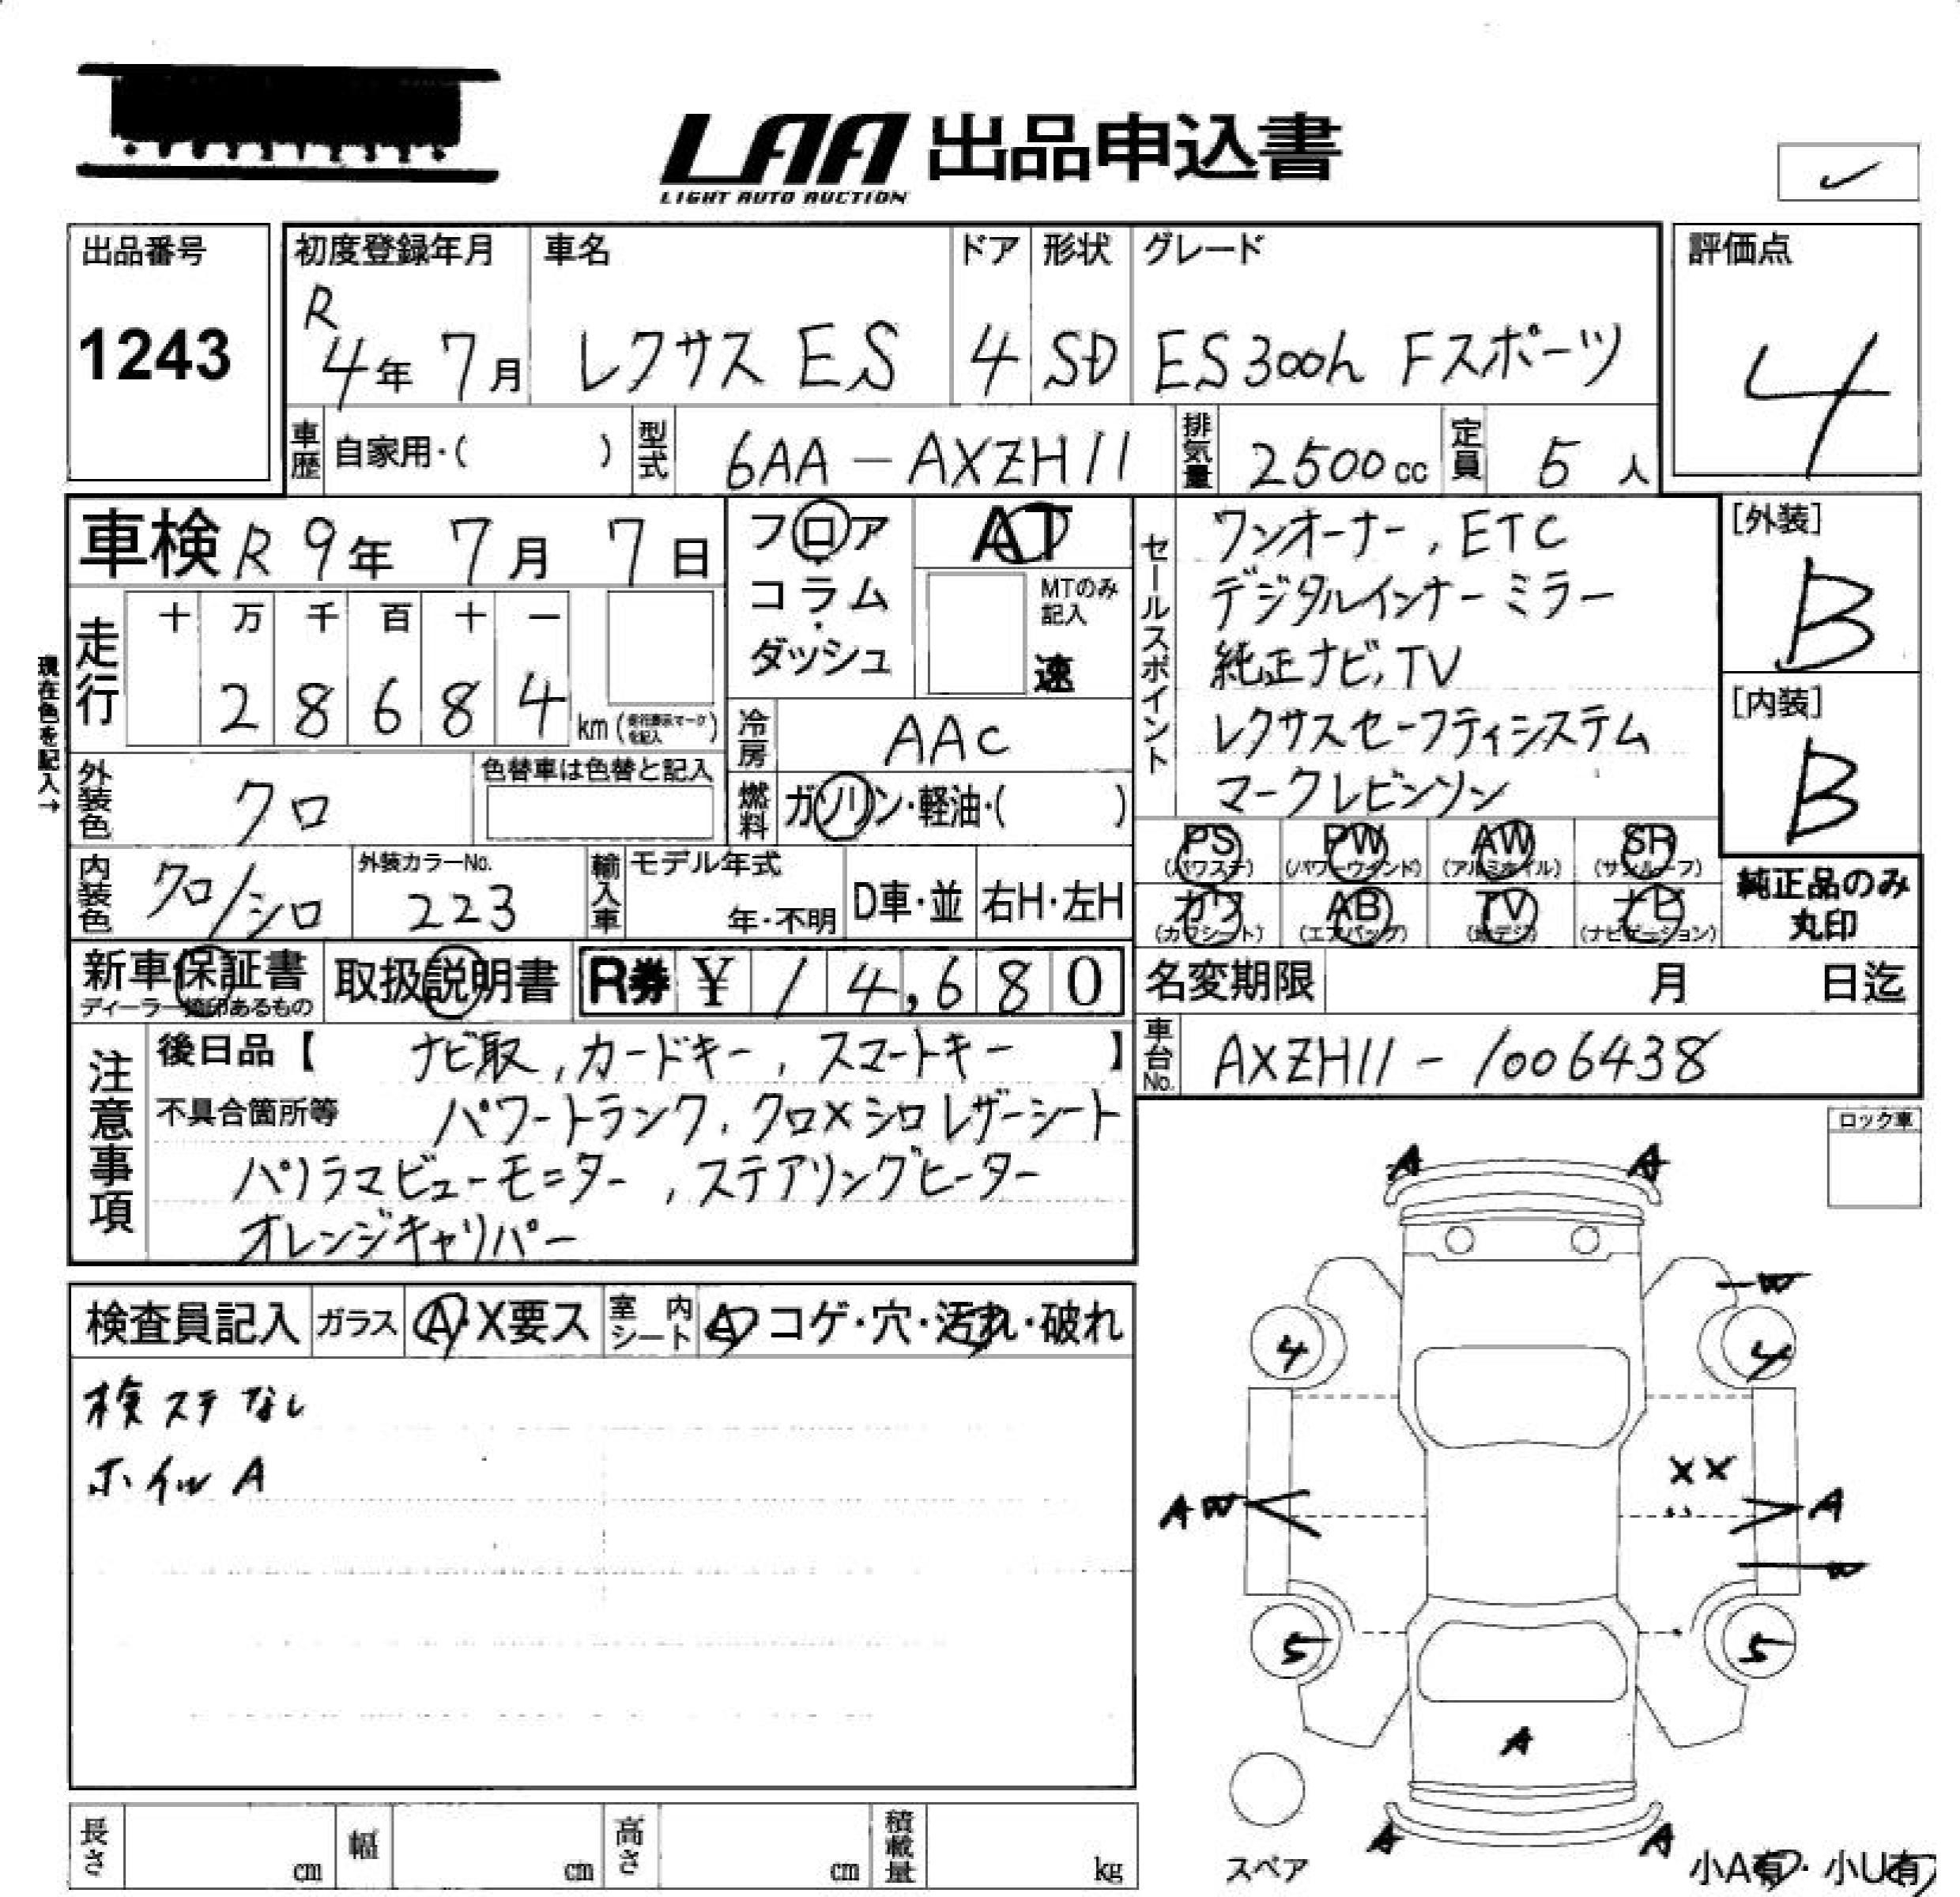 LAA 出品申込書
LIGHT AUTO AUCTION
✓
出品番号
1243
初度登録年月
R 4年 7月
車名
レクサス ES
ドア
4
形状
SD
グレード
ES300h Fスポーツ
評価点
4
車歴 自家用・( )
型式 6AA-AXZH11
排気量 2500cc
定員 5人
車検 R 9年 7月 7日
フロア・コラム・ダッシュ
AT
MTのみ記入
速
セールスポイント
ワンオーナー, ETC
デジタルインナーミラー
純正ナビ, TV
レクサスセーフティシステム
マークレビンソン
[外装]
B
[内装]
B
現在色を記入→
走行
十 万 千 百 十 一
2 8 6 8 4 km
冷房 AAC
外装色 クロ
色替車は色替と記入
燃料 ガソリン・軽油・( )
PS (パワステ) PW (パワーウインド) AW (アルミホイル) SR (サンルーフ)
カワ (カワシート) AB (エアバッグ) TV (地デジ) ナビ (ナビゲーション)
純正品のみ
丸印
内装色 クロ/シロ
外装カラーNo.
223
輸入車 モデル年式
年・不明
D車・並 右H・左H
新車保証書
ディーラー捺印あるもの
取扱説明書
R券 ¥ 14,680
名変期限 月 日迄
車台No. AXZH11-1006438
注意事項
後日品【 ナビ取, カードキー, スマートキー 】
不具合箇所等 パワートランク, クロ×シロレザーシート
パノラマビューモニター, ステアリングヒーター
オレンジキャリパー
ロック車
検査員記入 ガラス A・X要ス 室内シート A コゲ・穴・汚れ・破れ
検ステなし
ホイルA
A A
W
4 4
XX
AW A
W
5 5
A
A A
スペア
小A有・小U有
長さ cm 幅 cm 高さ cm 積載量 kg